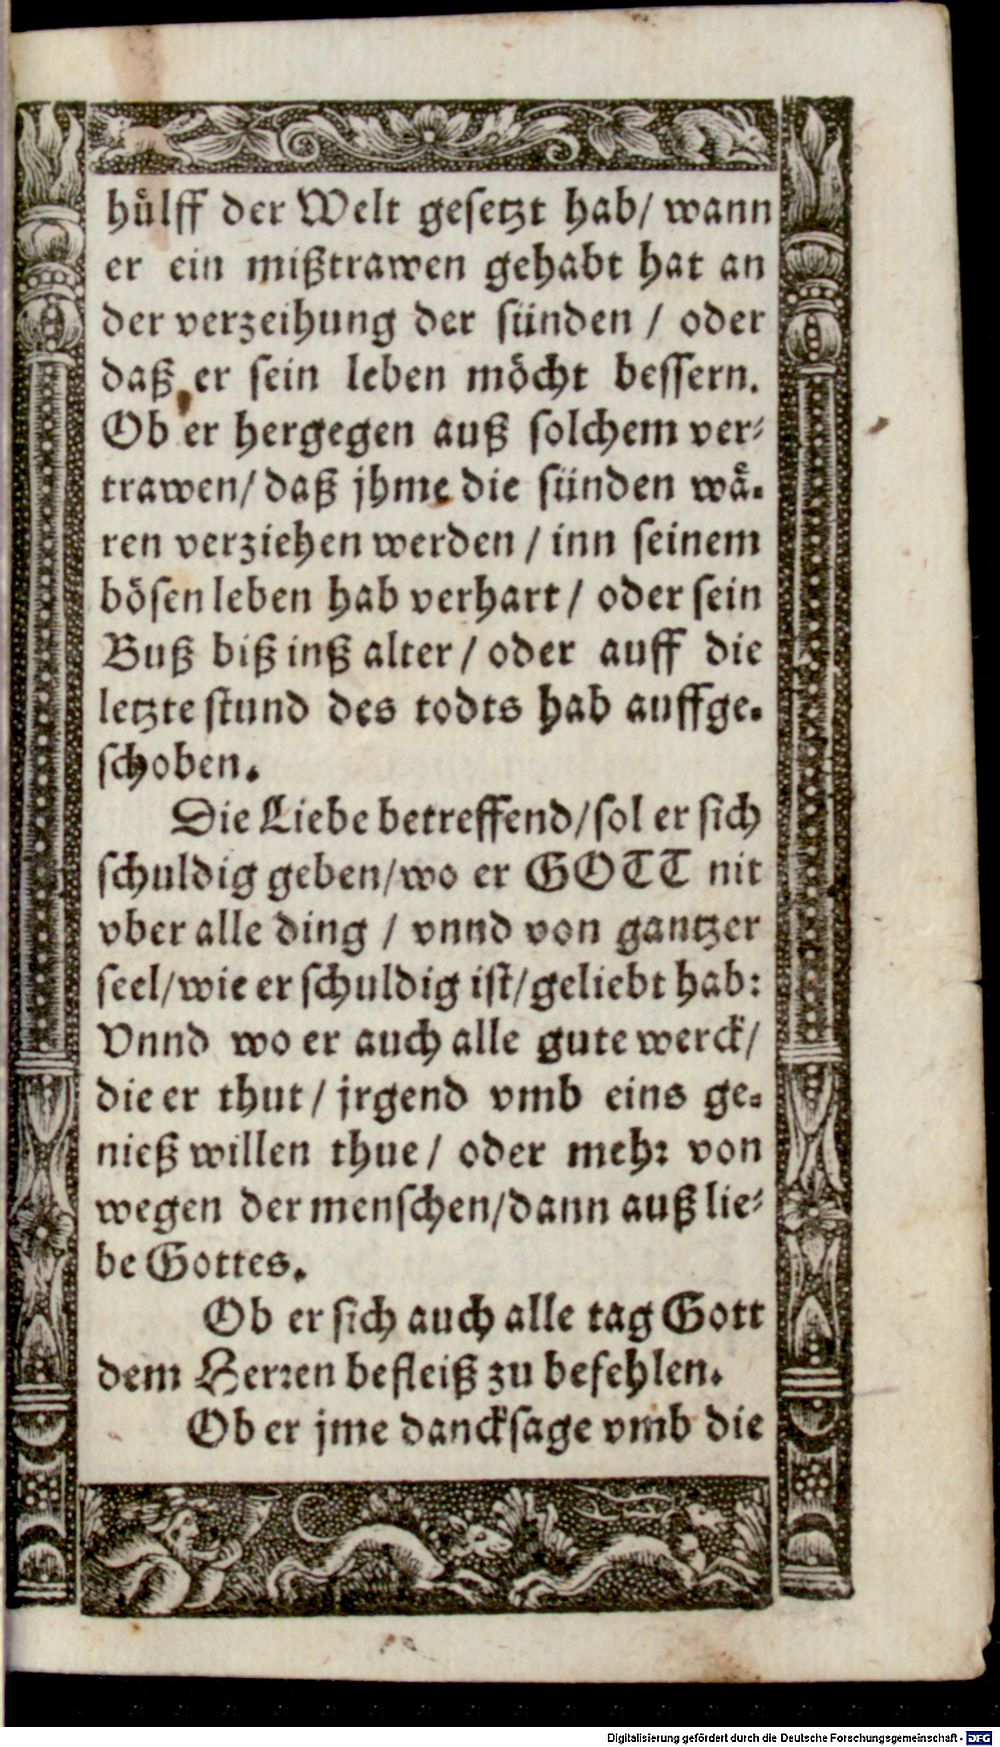 hülff der Welt gesetzt hab/ wann
er ein mißtrawen gehabt hat an
der verzeihung der sünden / oder
daß er sein leben möcht bessern.
Ob er hergegen auß solchem ver-
trawen/ daß jhme die sünden wä-
ren verziehen werden / inn seinem
bösen leben hab verhart / oder sein
Buß biß inß alter / oder auff die
letzte stund des todts hab auffge-
schoben.
Die Liebe betreffend/ sol er sich
schuldig geben/ wo er GOTT nit
vber alle ding / vnnd von gantzer
seel/ wie er schuldig ist/ geliebt hab:
Vnnd wo er auch alle gute werck/
die er thut / jrgend vmb eins ge-
nieß willen thue / oder mehr von
wegen der menschen/ dann auß lie-
be Gottes.
Ob er sich auch alle tag Gott
dem Herren befleiß zu befehlen.
Ob er jme dancksage vmb die
Digitalisierung gefördert durch die Deutsche Forschungsgemeinschaft - DFG